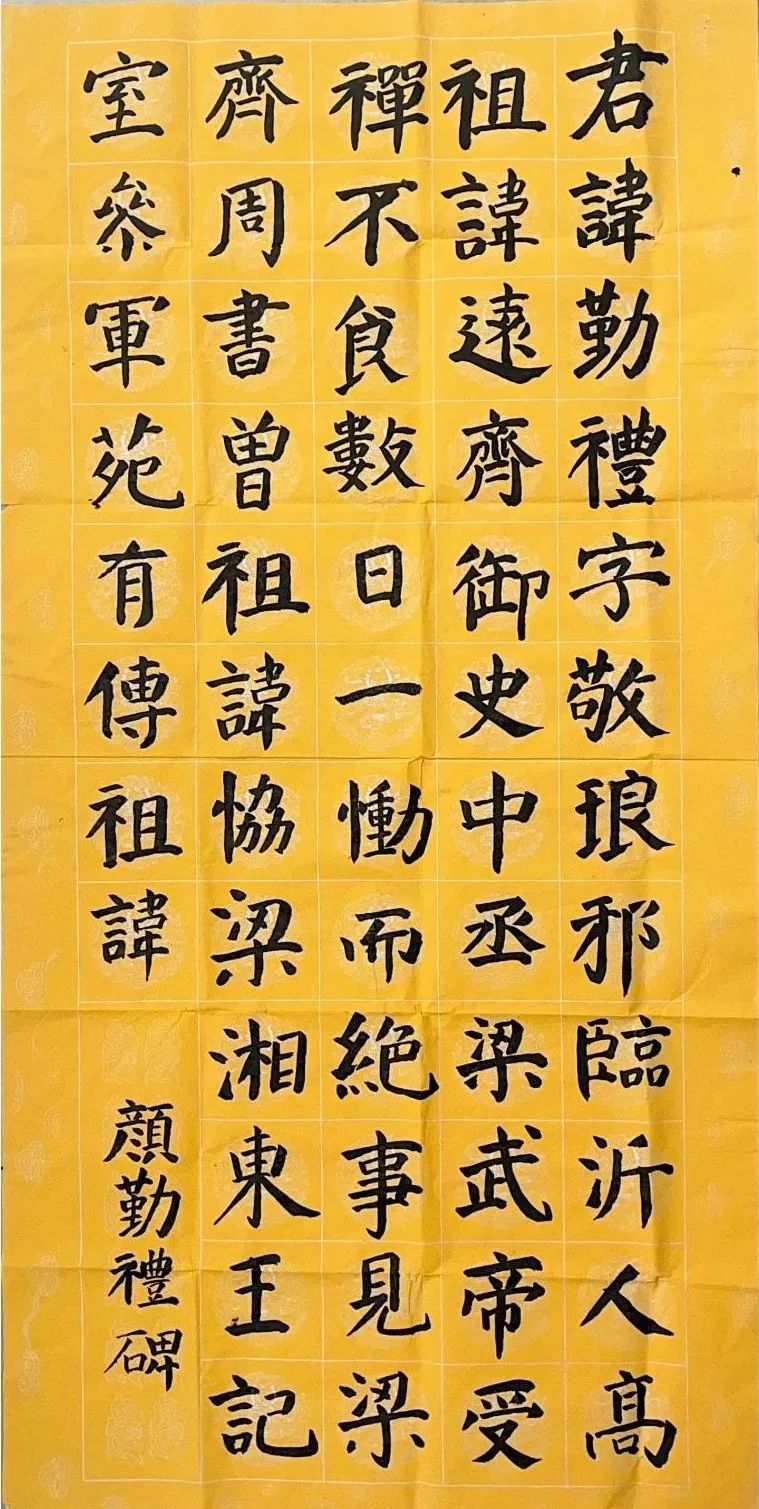 君諱勤禮字敬琅邪臨沂人高
祖諱遠齊御史中丞梁武帝受
禪不食數日一慟而絶事見梁
齊周書曽祖諱協梁湘東王記
室參軍苑有傳祖諱
顔勤禮碑